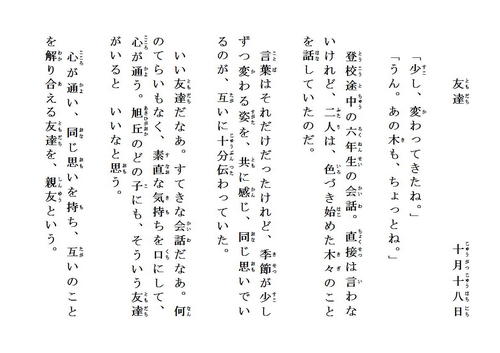 友達
十月十八日
「少し、変わってきたね。」
「うん。あの木も、ちょっとね。」
登校途中の六年生の会話。直接は言わな
いけれど、二人は、色づき始めた木々のこと
を話していたのだ。
言葉はそれだけだったけれど、季節が少し
ずつ変わる姿を、共に感じ、同じ思いでい
るのが、互いに十分伝わっていた。
いい友達だなあ。すてきな会話だなあ。何
のてらいもなく、素直な気持ちを口にして、
心が通う。旭丘のどの子にも、そういう友達
がいると いいなと思う。
心が通い、同じ思いを持ち、互いのこと
を解り合える友達を、親友という。